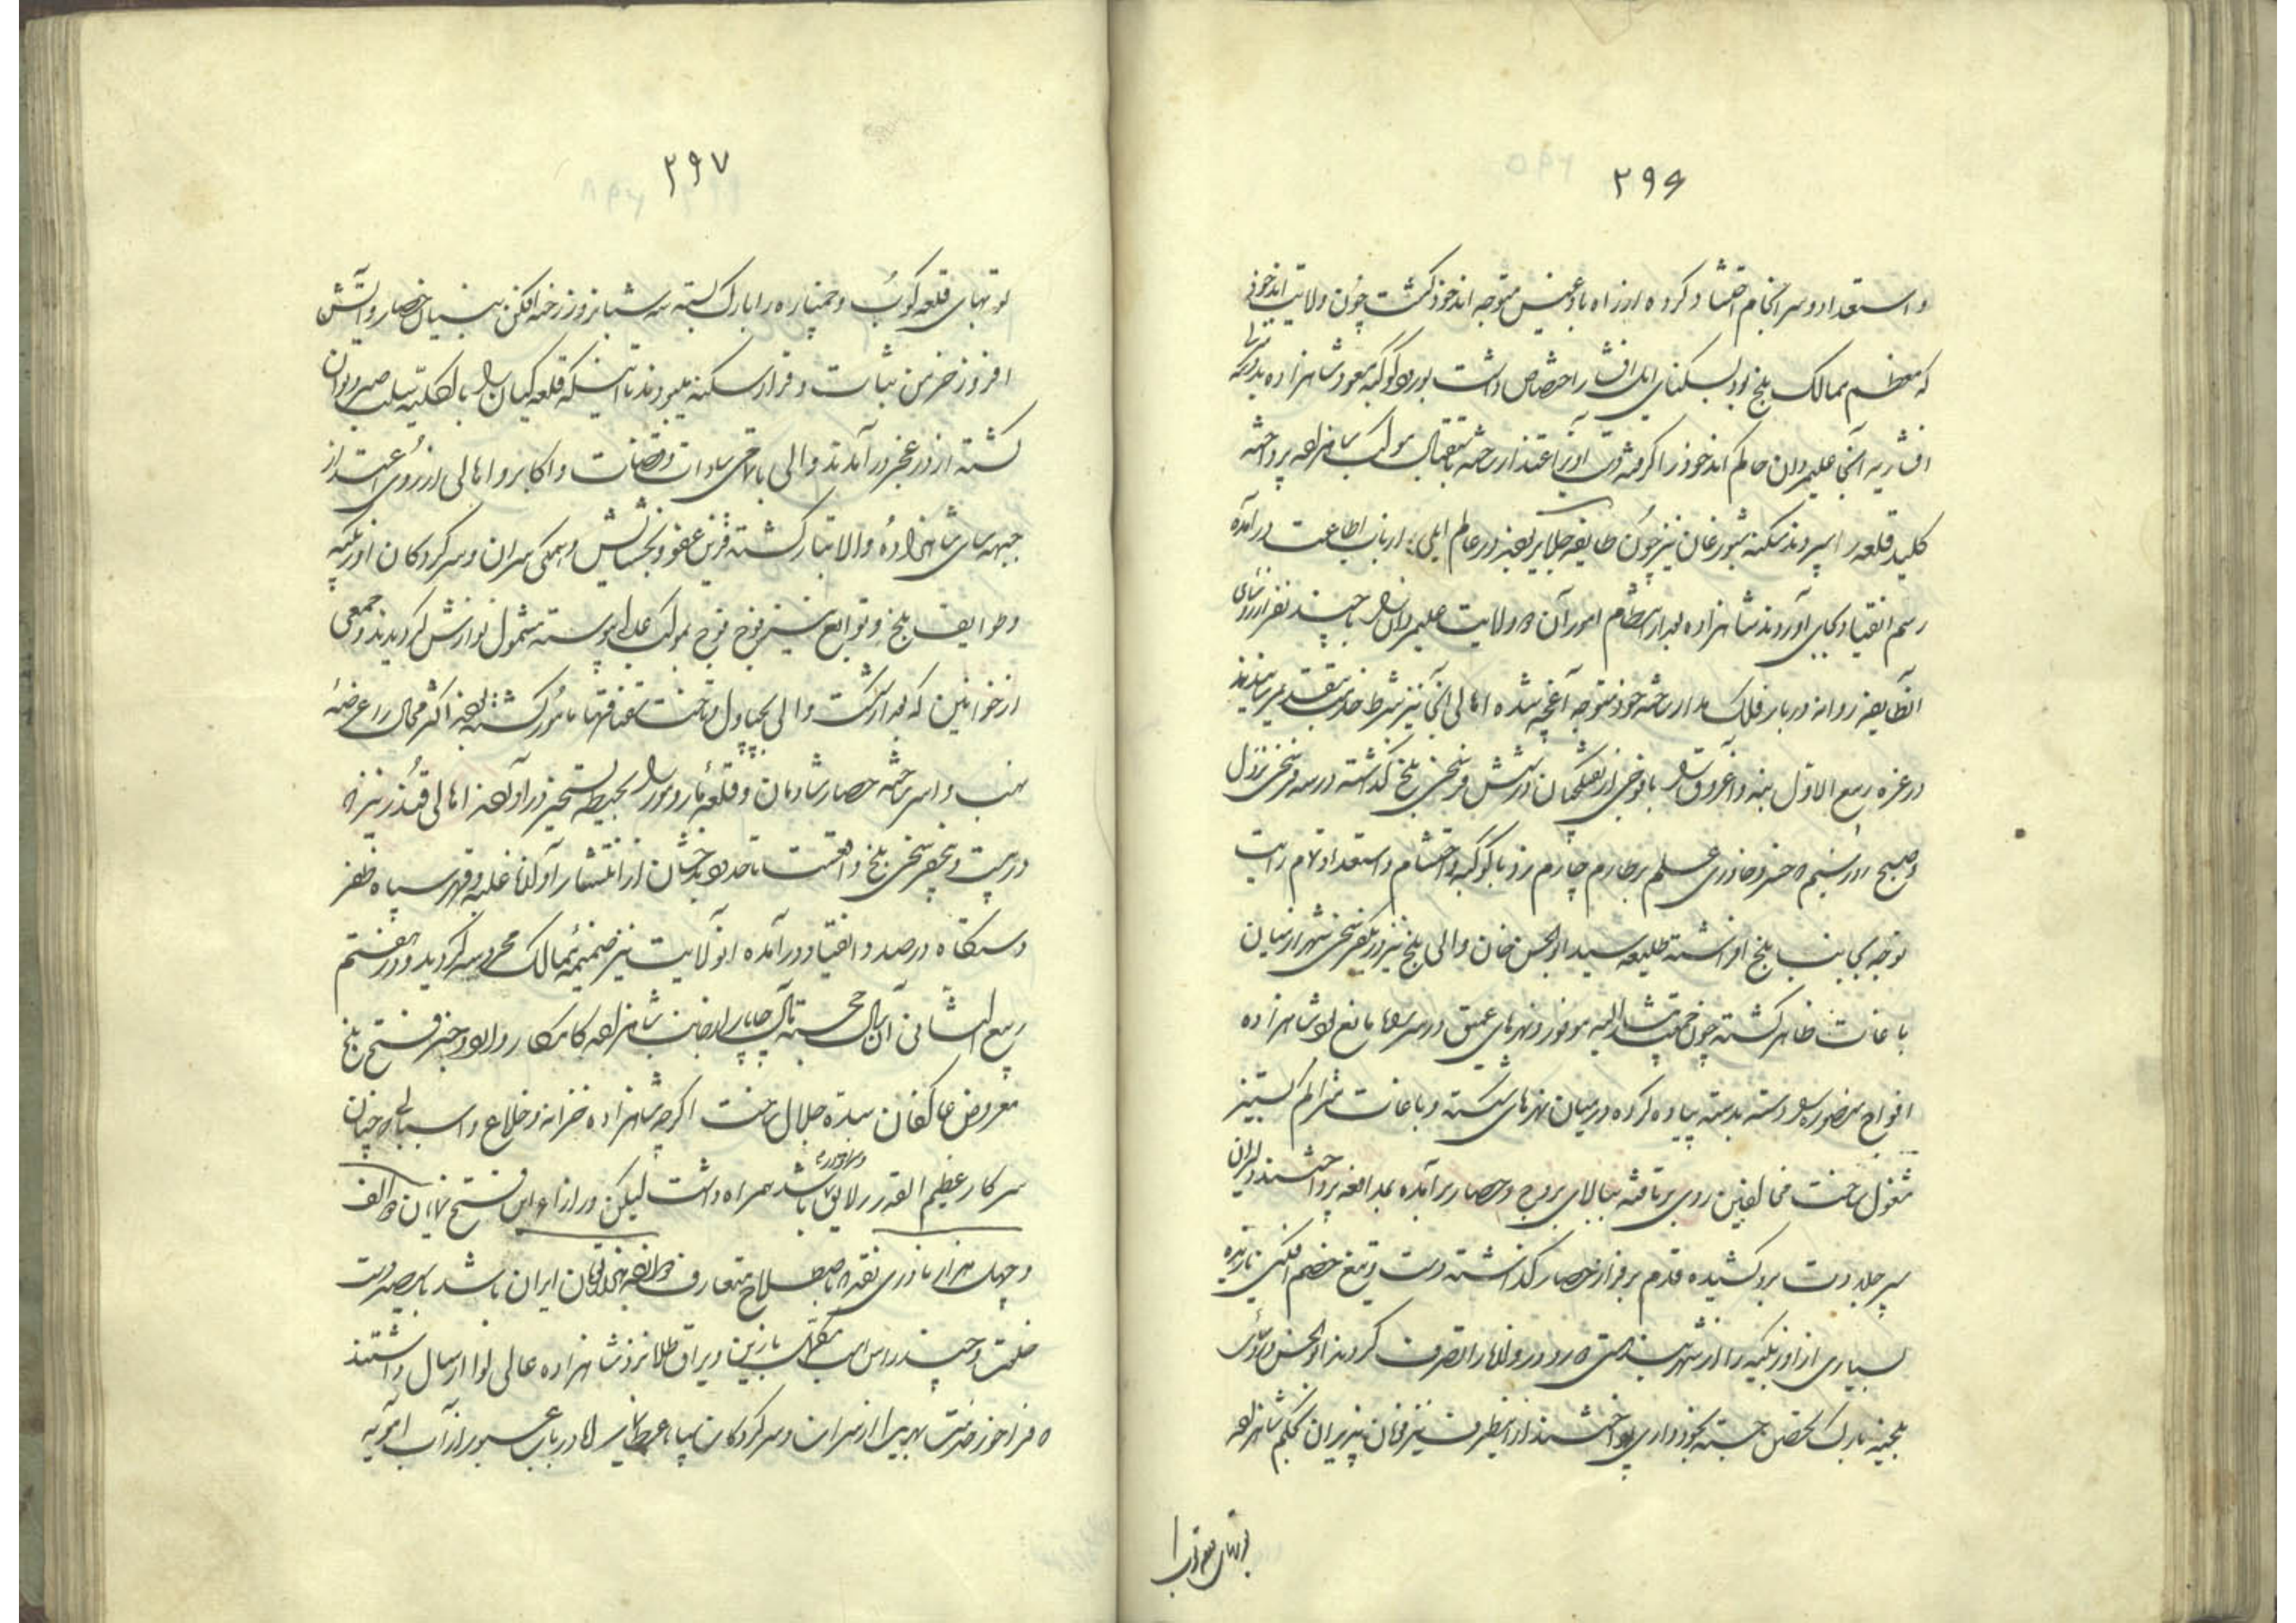 ۲۹۶
و استعداد و سرانجام اقتضا کرده از راه بادغیس متوجه اندخود گشت چون ولایت اندخود
که معظم ممالک بلخ بود بسکنای ایل افشار اختصاص داشت بورود کوکبه مسعود شاهزاده
افشاریه آنجا علیمردان حاکم اندخود را گرفته دست آویز اعتذار ساخته باستقبال موکب شاهزاده پرداخته
کلید قلعه را سپردند سکنه شبورغان نیز چون طایفه جلایر بودند در عالم ایلی از باب اطاعت درآمده
رسم انقیاد بجای آوردند شاهزاده بعد از انتظام امور آن ولایت علیمردان را با چند نفر از رؤسای
آنطایفه روانه دربار فلک مدار ساخته خود متوجه آقچه شده اهالی آنجا نیز شرط خدمت بتقدیم رسانیدند
در غره ربیع الاول بنه و آغروق را با فوجی از تفنگچیان در شش فرسخی بلخ گذاشته در سه فرسخی نزول
و صبح روز پنجم که خسرو خاوری علم بر طارم چارم زد با کوکبه و احتشام و استعداد تمام رایت
توجه بجانب بلخ افراشته طلیعه سید ابوالحسن خان والی بلخ نیز در یکفرسخی شهر از میان
باغات ظاهر گشته چون جمعیت ایشان موفور و نهرهای عمیق در سر راه مانع بود شاهزاده
افواج منصوره را دسته بدسته پیاده کرده در میان نهرهای شکسته و باغات سرگرم ستیز
مشغول ساخت مخالفین روی برتافته ببالای بروج و حصار برآمده بمدافعه پرداختند دلیران
سپر جلادت بر رو کشیده قدم بر فراز حصار گذاشته دست و تیغ خصم افکنی
بسیاری از اوزبکیه را از شهربند هستی در ربوده دروازها را تصرف کردند ابوالحسن و رؤسای
بلخیه بارک تحصن جسته بخودداری پرداختند از اینطرف نیز فرمان پذیران بحکم شاهزاده
توپهای قلعه کوب را
۲۹۷
توپهای قلعه کوب و خمپاره را بارک بسته سه شبانروز رخنه افکن بنیان حصار و آتش
افروز خرمن ثبات و قرار سکنه میبودند تا اینکه قلعه کیان را بالکلیه سلب صبر و توان
گشته از در عجز درآمدند والی با تمامی سادات و قضات و اکابر و اهالی از روی اعتذار
جبهه سای شاهزاده والاتبار گشته قرین عفو و بخشایش و همگی سران و سرکردگان اوزبکیه
و طوایف بلخ و توابع نیز فوج فوج بموکب عالی پیوسته مشمول نوازش گردیدند و جمعی
از خوانین که بعد از شکست والی بچپاول و تاخت سقناقها مأمور گشته بودند اکثر محال را عرضه
نهب و اسر ساخته حصار شادمان و قلعه را بحیطه تسخیر درآوردند اهالی قندز نیز که
در بیست و پنجفرسخی بلخ واقعست تا حدود بدخشان از انتشار آوازه غلبه و قهر سپاه ظفر
دستگاه در صدد انقیاد درآمده آنولایت نیز ضمیمه ممالک محروسه گردید و در هفتم
ربیع الثانی آن سال خجسته مآل چاپار از جانب شاهزاده کامکار وارد و خبر فتح بلخ
معروض عاکفان سده جلال ساخت اگرچه شاهزاده خزانه و خلاع و اسباب چنان
سرکار عظیم القدر را لایق باشد همراه داشت لیکن در ازاء این فتح نمایان دو الف
و چهل هزار نادری نقد که باصطلاح متعارف دوازده هزار تومان ایران باشد با سیصد دست
خلعت و چند رأس اسب با زین و یراق طلا نزد شاهزاده عالی لوا ارسال داشتند
که فراخور خدمت بهر یک از سران و سرکردگان سپاه عطا نماید و در باب عبور از آب آمویه